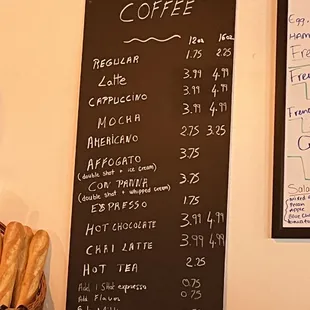 COFFEE
12oz 16oz
REGULAR 1.75 2.25
Latte 3.99 4.99
CAPPUCCINO 3.99 4.99
MOCHA 3.99 4.99
AMERICANO 2.75 3.25
AFFOGATO 3.75
(double shot + ice cream)
CON PANNA 3.75
(double shot + whipped cream)
ESPRESSO 1.75
HOT CHOCOLATE 3.99 4.99
CHAI LATTE 3.99 4.99
HOT TEA 2.25
Add 1 Shot espresso 0.75
Add Flavor 0.75
Egg,
HAM
Fre
Fren
Fren
Sala